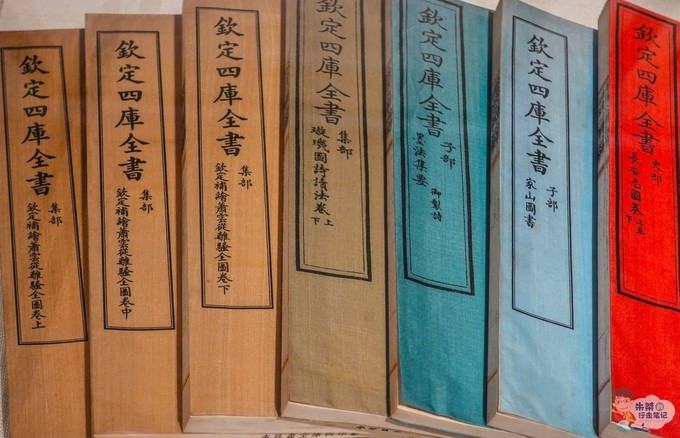 欽定四庫全書
集部
欽定補繪蕭雲從離騷全圖卷上
欽定四庫全書
集部
欽定補繪蕭雲從離騷全圖卷中
欽定四庫全書
集部
欽定補繪蕭雲從離騷全圖卷下
欽定四庫全書
集部
璇璣圖詩讀法卷上下
欽定四庫全書
子部
御製詩
墨法集要
欽定四庫全書
子部
家山圖書
欽定四庫全書
史部
長安志圖卷上至下
朱桀的
行走笔记